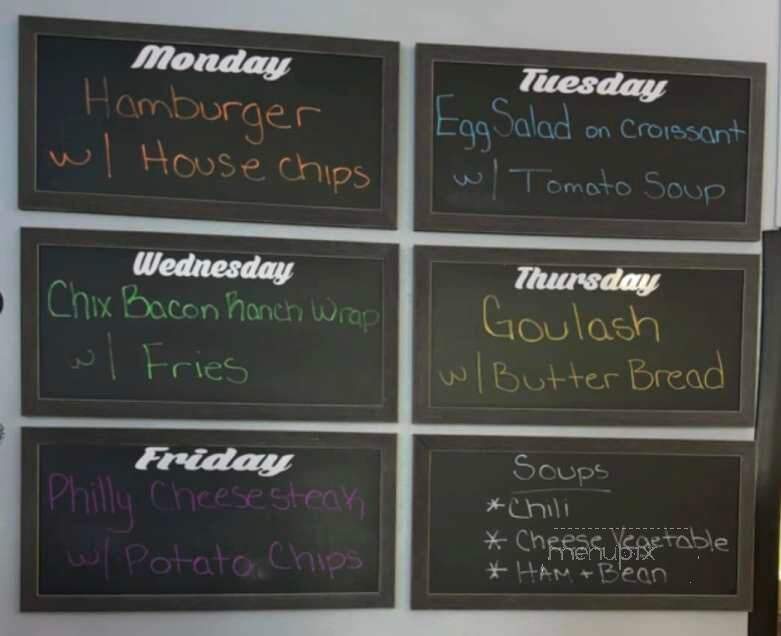 Monday
Hamburger
w/ House chips
Tuesday
Egg Salad on Croissant
w/ Tomato Soup
Wednesday
Chix Bacon Ranch Wrap
w/ Fries
Thursday
Goulash
w/ Butter Bread
Friday
Philly Cheesesteak
w/ Potato Chips
Soups
* Chili
* Cheese Vegetable
menupix
* HAM + Bean